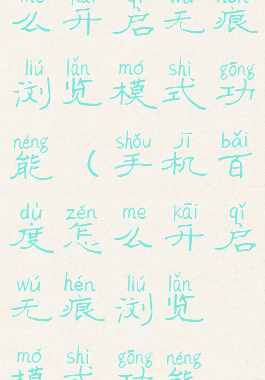 me kāi qǐ wú hén
么开启无痕
liú lǎn mó shì gōng
浏览模式功
néng shǒu jī bǎi
能（手机百
dù zěn me kāi qǐ
度怎么开启
wú hén liú lǎn
无痕浏览
mó shì gōng néng
模式功能